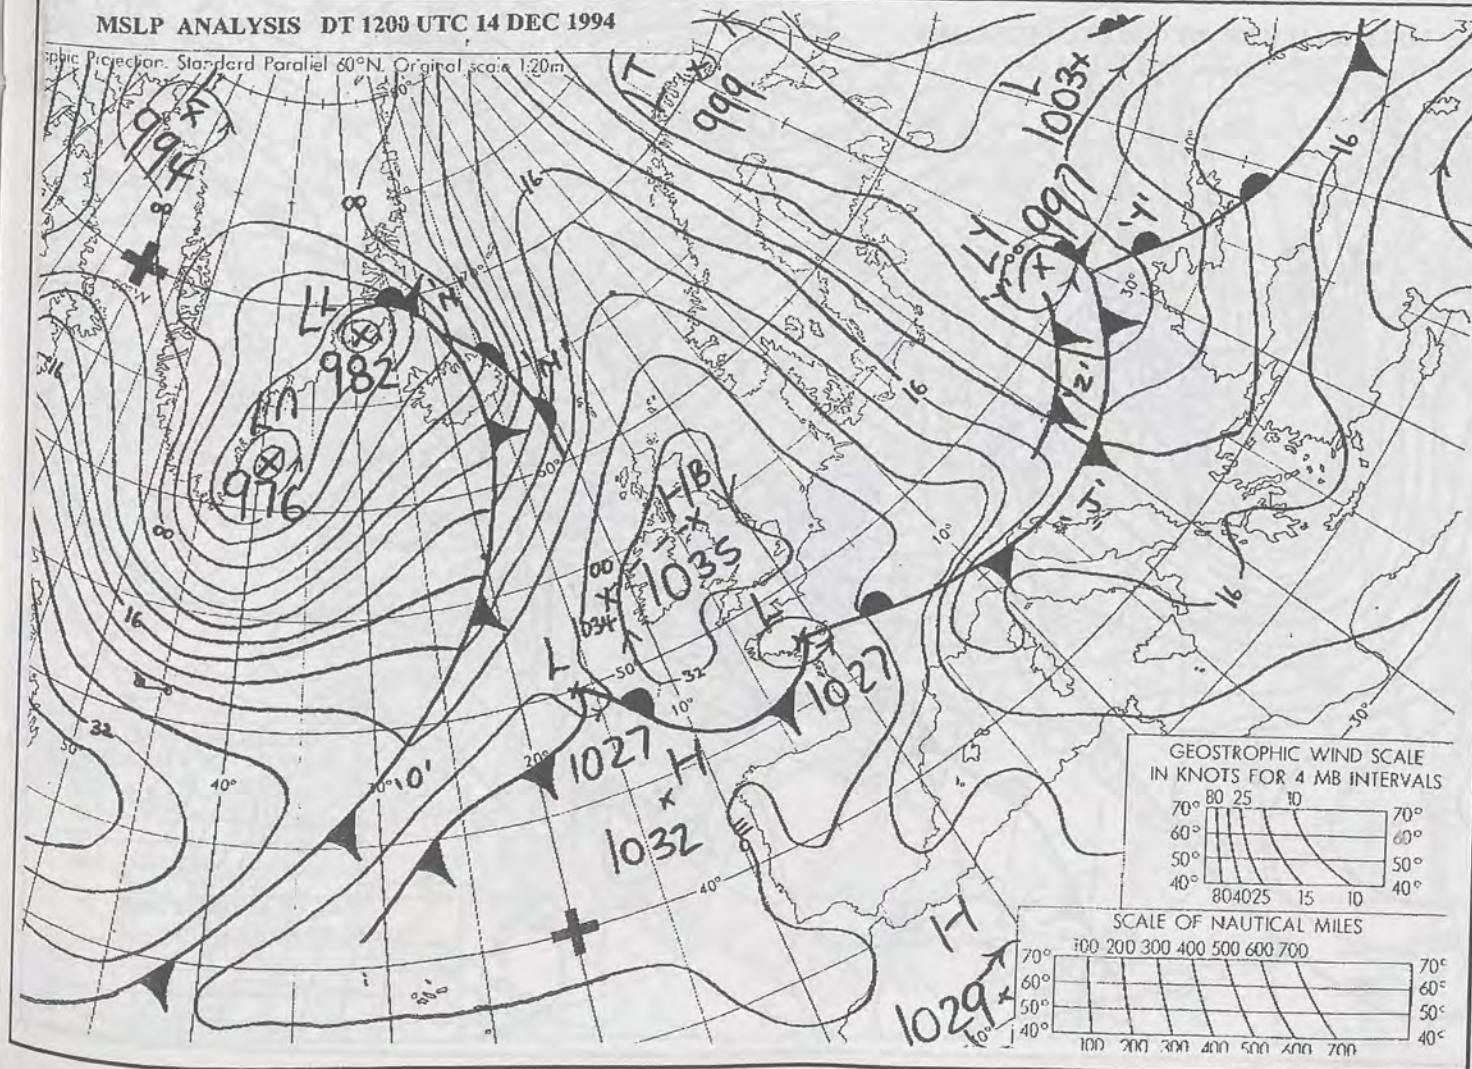 MSLP ANALYSIS DT 1200 UTC 14 DEC 1994
phic Projection. Standard Parallel 60°N. Original scale 1:20m
994
T
999
L
1003
997
'Y'
16
16
LL
982
'N'
'N'
976
16
16
'Z'
'J'
HB
1035
00
034
16
16
L
1027
L
1027
32
50°
10°
32
50°
40°
'O'
20°
H
1032
40°
10°
30°
40°
30°
H
1029
GEOSTROPHIC WIND SCALE
IN KNOTS FOR 4 MB INTERVALS
80 25 10
70° 70°
60° 60°
50° 50°
40° 40°
80 40 25 15 10
SCALE OF NAUTICAL MILES
100 200 300 400 500 600 700
70° 70°
60° 60°
50° 50°
40° 40°
100 200 300 400 500 600 700